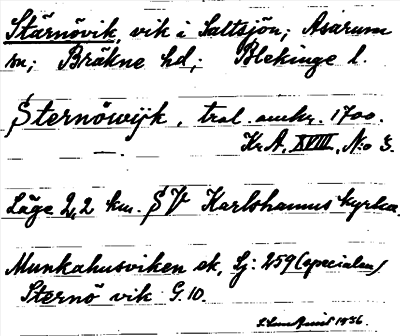 Stärnövik, vik i Saltsjön; Asarum
sn; Bräkne hd; Blekinge l.
Sternöwijk, trol. omkr. 1700.
Kr A. XVIII, N:o 3.
Läge 2,2 km. SV Karlshamns kyrka.
Munkahusviken ek, Sj: 259 (specialen)
Sternö vik G.10.
1936.